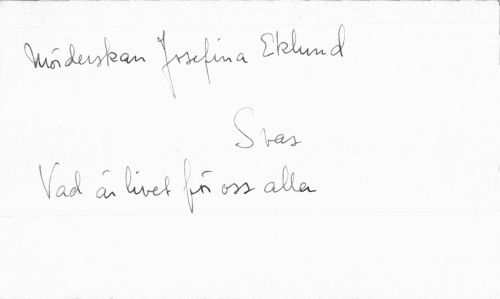 Mörderskan Josefina Eklund
Svas
Vad är livet för oss alla